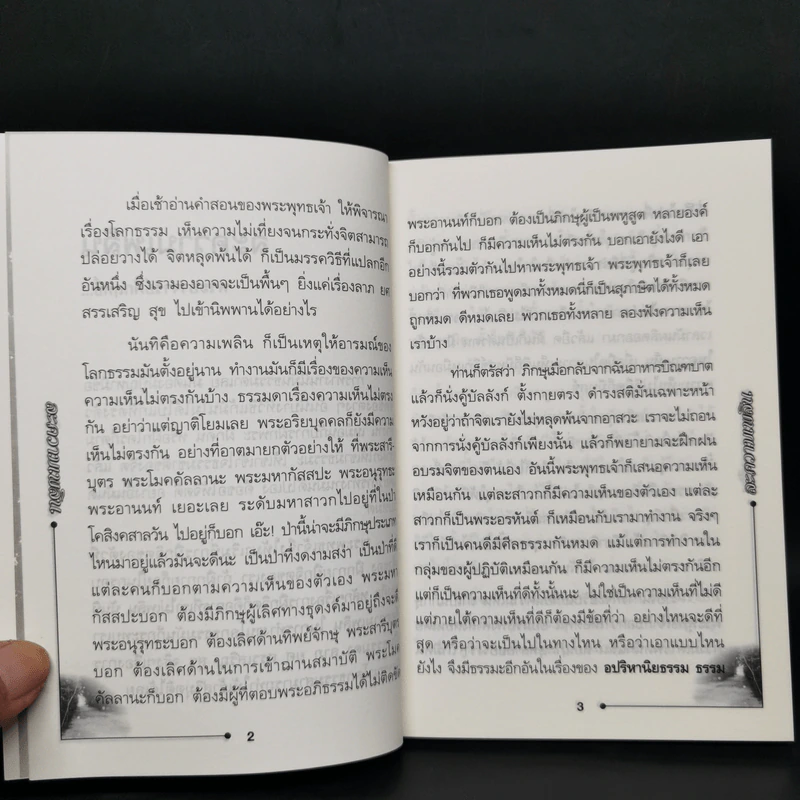 เมื่อเช้าอ่านคำสอนของพระพุทธเจ้า ให้พิจารณา
เรื่องโลกธรรม เห็นความไม่เที่ยงจนกระทั่งจิตสามารถ
ปล่อยวางได้ จิตหลุดพ้นได้ ก็เป็นมรรควิธีที่แปลกอีก
อันหนึ่ง ซึ่งเรามองอาจจะเป็นพื้นๆ ยิ่งแค่เรื่องลาภ ยศ
สรรเสริญ สุข ไปเข้านิพพานได้อย่างไร
นันทิคือความเพลิน ก็เป็นเหตุให้อารมณ์ของ
โลกธรรมมันตั้งอยู่นาน ทำงานมันก็มีเรื่องของความเห็น
ความเห็นไม่ตรงกันบ้าง ธรรมดาเรื่องความเห็นไม่ตรง
กัน อย่าว่าแต่ญาติโยมเลย พระอริยบุคคลก็ยังมีความ
เห็นไม่ตรงกัน อย่างที่อาตมายกตัวอย่างให้ ที่พระสารี-
บุตร พระโมคคัลลานะ พระมหากัสสปะ พระอนุรุทธะ
พระอานนท์ เยอะแยะเลย ระดับมหาสาวกไปอยู่ที่ในป่า
โคสิงคสาลวัน ไปอยู่ก็บอก เอ๊ะ! ป่านี้น่าจะมีภิกษุประเภท
ไหนมาอยู่แล้วมันจะดีนะ เป็นป่าที่งดงามสง่า เป็นป่าที่ดี
แต่ละคนก็บอกตามความเห็นของตัวเอง พระมหา
กัสสปะบอก ต้องมีภิกษุผู้เลิศทางธุดงค์มาอยู่ถึงจะดี
พระอนุรุทธะบอก ต้องเลิศด้านทิพย์จักษุ พระสารีบุตร
บอก ต้องเลิศด้านในการเข้าฌานสมาบัติ พระโมค
คัลลานะก็บอก ต้องมีผู้ที่ตอบพระอภิธรรมได้ไม่ติดขัด
2
พระอานนท์ก็บอก ต้องเป็นภิกษุผู้เป็นพหูสูต หลายองค์
ก็บอกกันไป ก็มีความเห็นไม่ตรงกัน บอกเอายังไงดี เอา
อย่างนี้รวมตัวกันไปหาพระพุทธเจ้า พระพุทธเจ้าก็เลย
บอกว่า ที่พวกเธอพูดมาทั้งหมดนี่ก็เป็นสุภาษิตได้ทั้งหมด
ถูกหมด ดีหมดเลย พวกเธอทั้งหลาย ลองฟังความเห็น
เราบ้าง
ท่านก็ตรัสว่า ภิกษุเมื่อกลับจากฉันอาหารบิณฑบาต
แล้วก็นั่งคู้บัลลังก์ ตั้งกายตรง ดำรงสติมั่นเฉพาะหน้า
หวังอยู่ว่าถ้าจิตเรายังไม่หลุดพ้นจากอาสวะ เราจะไม่ถอน
จากการนั่งคู้บัลลังก์เพียงนั้น แล้วก็พยายามจะฝึกฝน
อบรมจิตของตนเอง อันนี้พระพุทธเจ้าก็เสนอความเห็น
เหมือนกัน แต่ละสาวกก็มีความเห็นของตัวเอง แต่ละ
สาวกก็เป็นพระอรหันต์ ก็เหมือนกับเรามาทำงาน จริงๆ
เราก็เป็นคนดีมีศีลธรรมกันหมด แม้แต่การทำงานใน
กลุ่มของผู้ปฏิบัติเหมือนกัน ก็มีความเห็นไม่ตรงกันอีก
แต่ก็เป็นความเห็นที่ดีทั้งนั้นนะ ไม่ใช่เป็นความเห็นที่ไม่ดี
แต่ภายใต้ความเห็นที่ดีก็ต้องมีข้อที่ว่า อย่างไหนจะดีที่
สุด หรือว่าจะเป็นไปในทางไหน หรือว่าเอาแบบไหน
ยังไง จึงมีธรรมะอีกอันในเรื่องของ อปริหานิยธรรม ธรรม
3